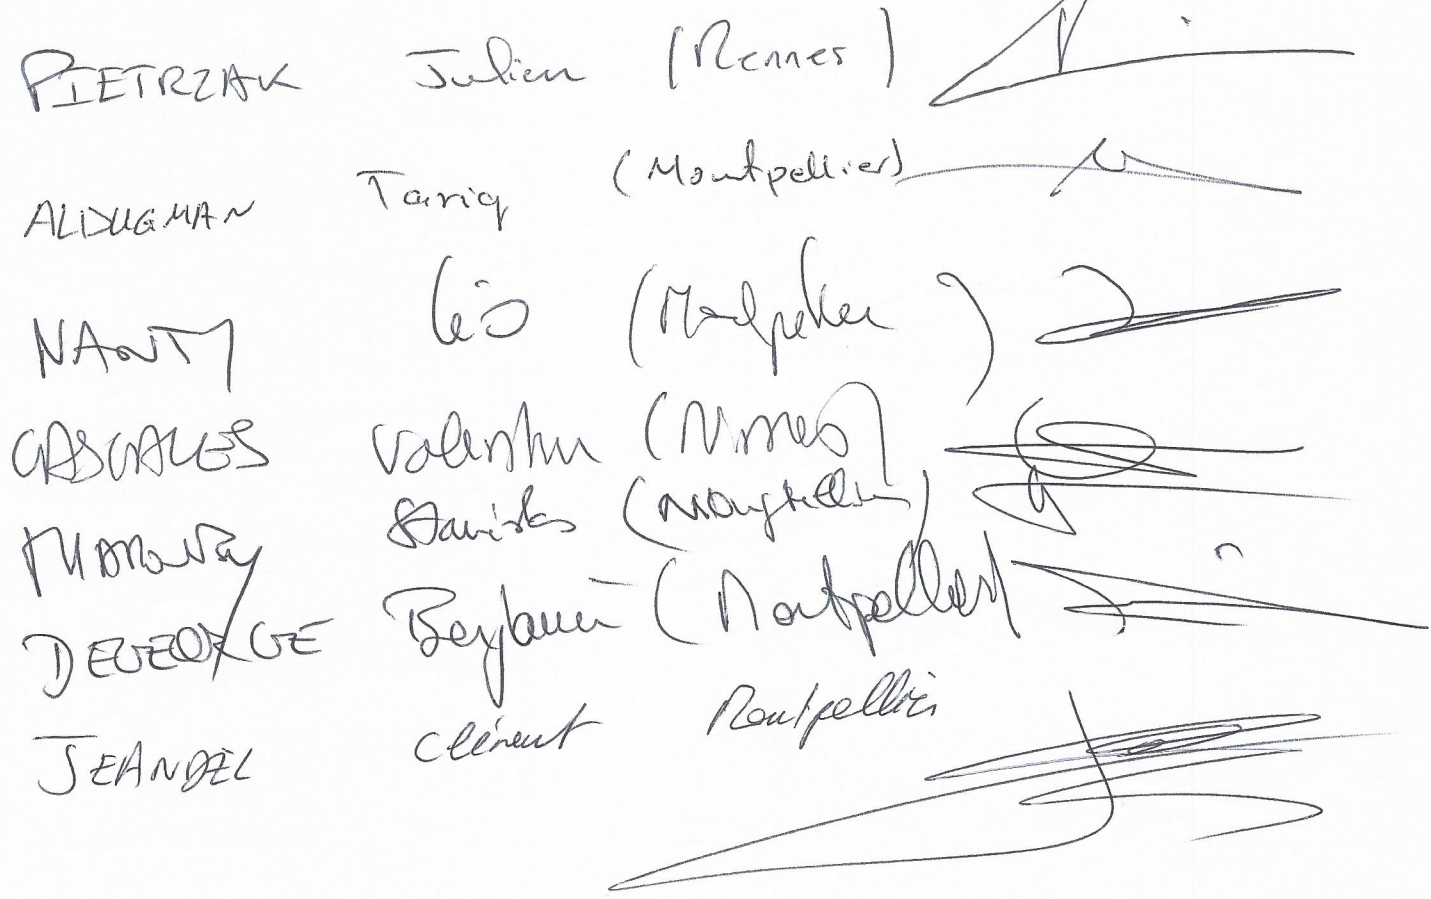 PIETRZAK Julien (Rennes)
ALDUGMAN Tariq (Montpellier)
NANTY Léo (Montpellier)
CASCALES Valentin (Nimes)
Stanislas (Montpellier)
DELEORGE Benjamin (Montpellier)
JEANDEL Clément Montpellier